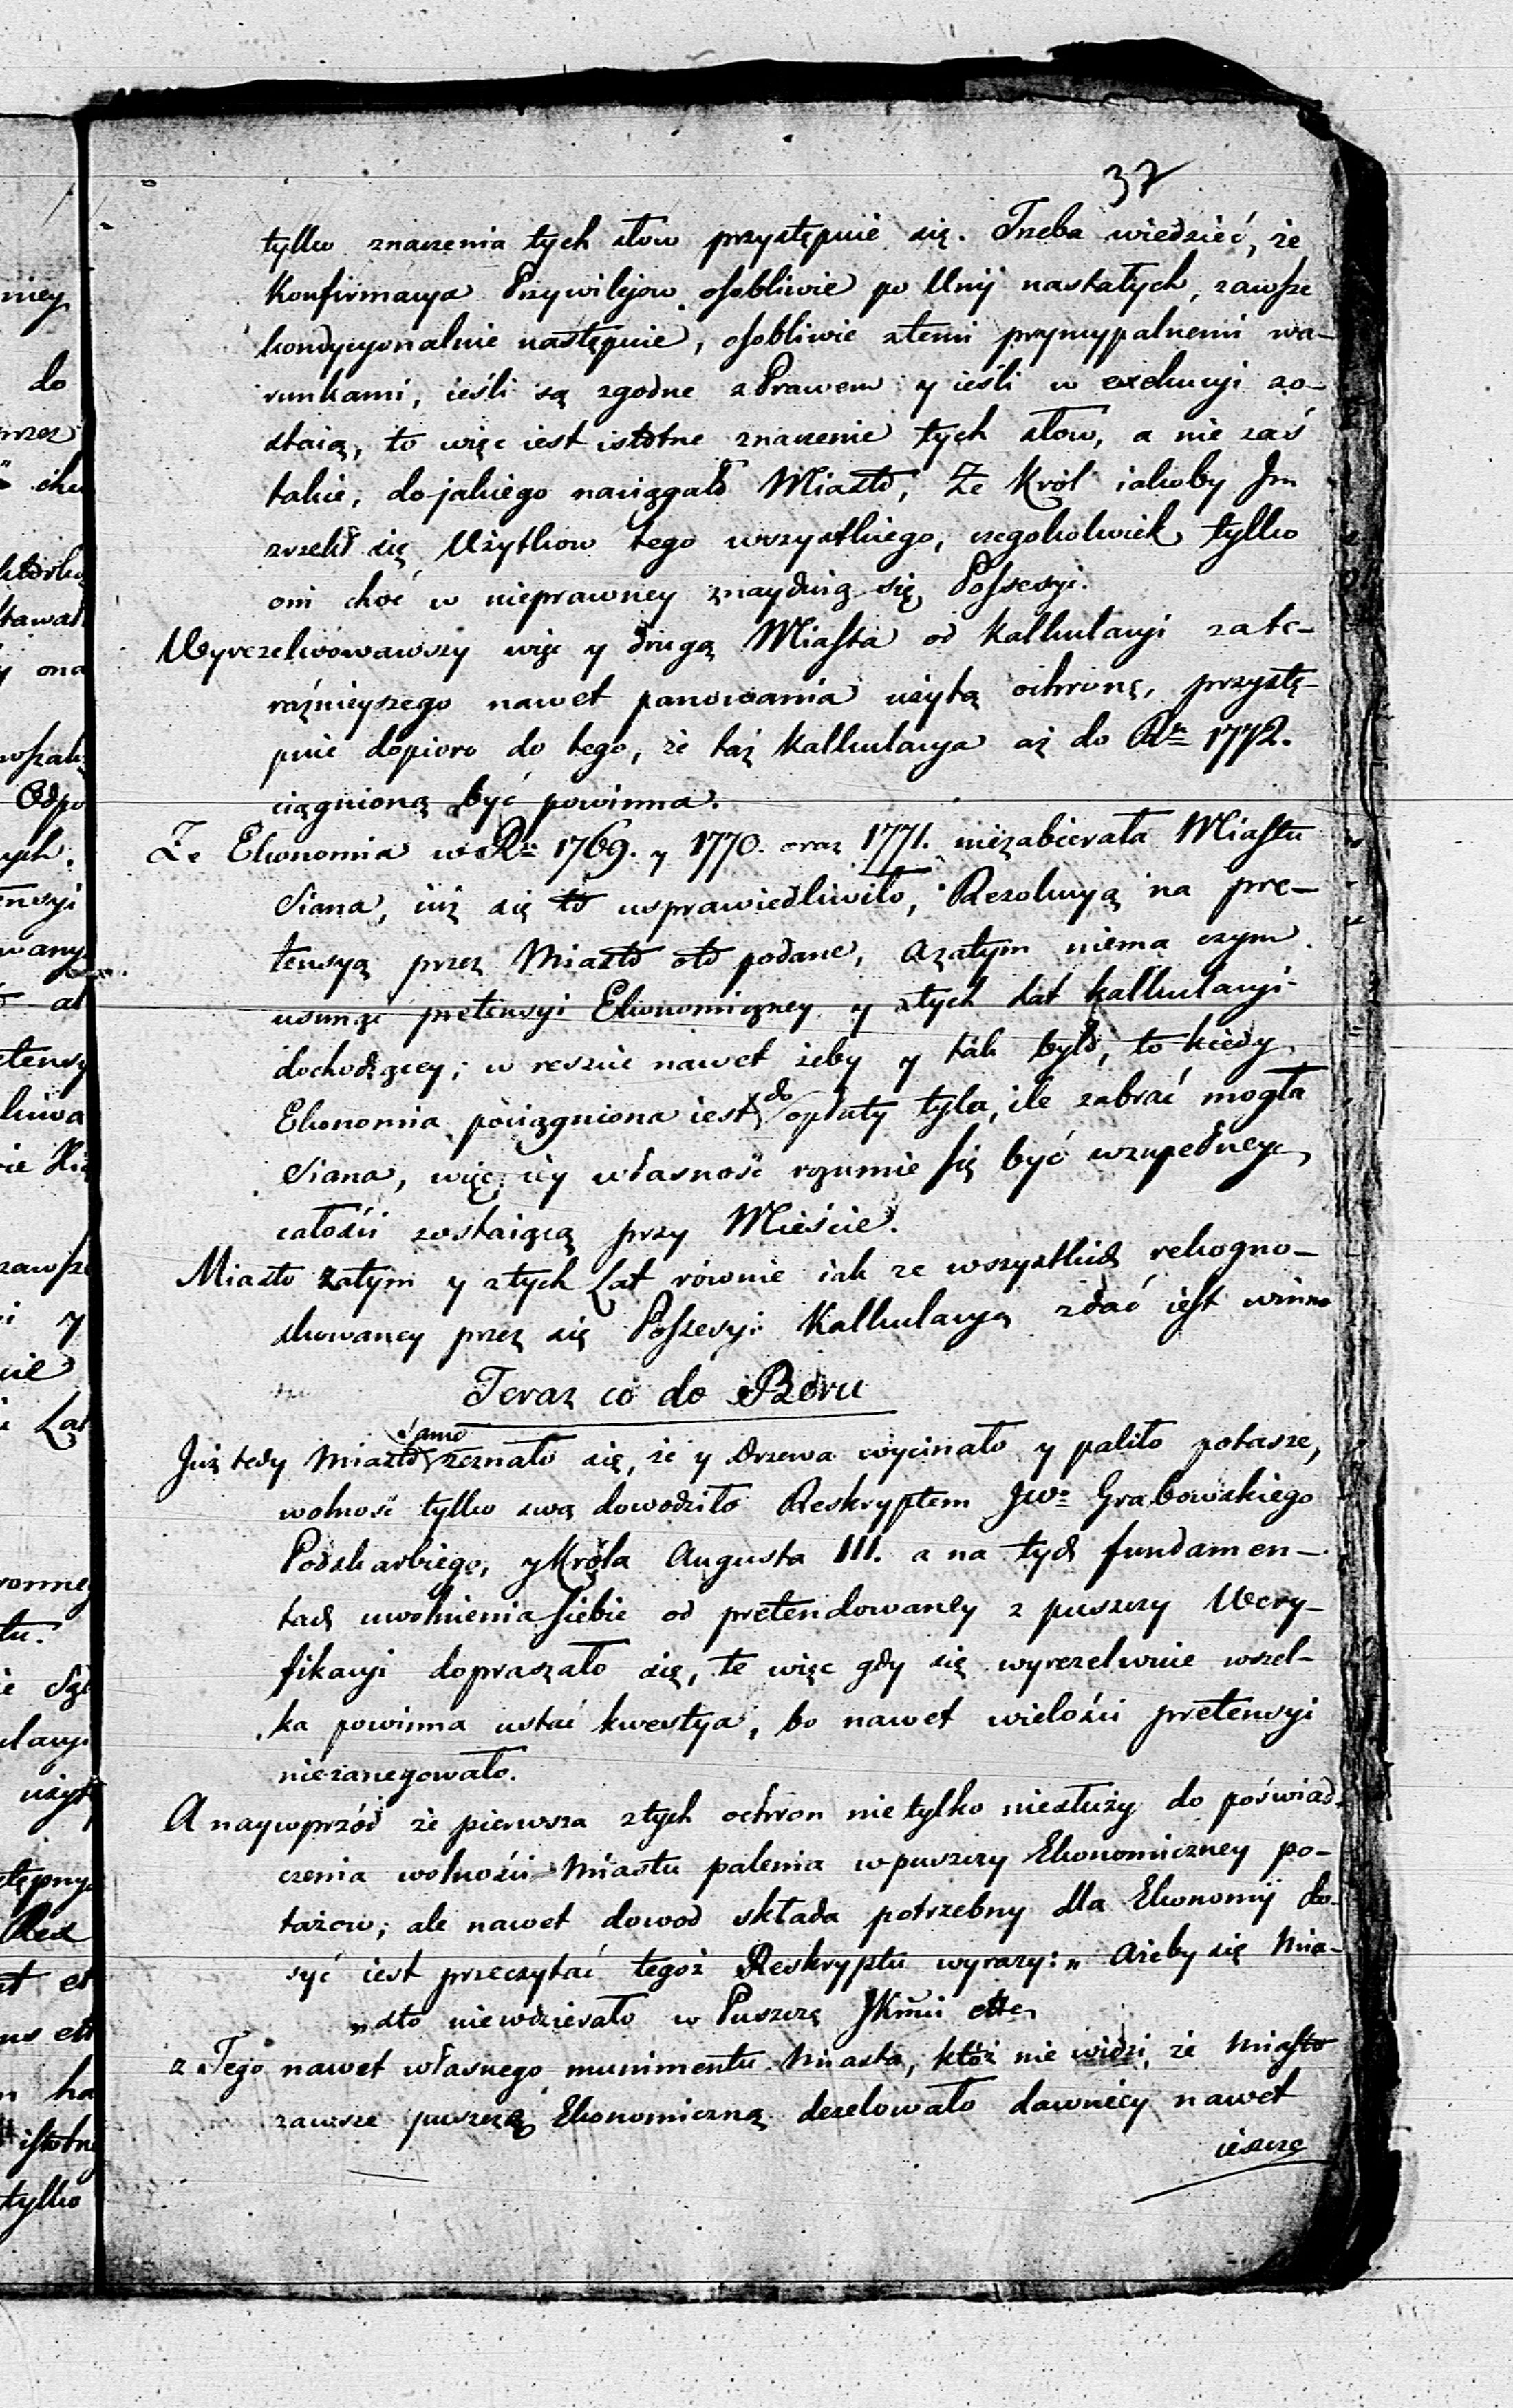 37
tylko znaczenia tych słow przystępuie się. Trzeba wiedzieć, że
Konfirmacya Przywilejow osobliwie po Unij nastałych, zawsze
kondycyonalnie następuie, osobliwie z temi pryncypalnemi wa-
runkami, ieśli są zgodne z Prawem y ieśli w exekucyi zo-
staią, to więc iest istotne znaczenie tych słow, a nie zaś
takie, do jakiego naciągało Miasto, Że Król iakoby Im
zrzekł się Użytkow tego wszystkiego, czegokolwiek tylko
oni choć w nieprawney znayduią się Possesyi.
Wyrezelwowawszy więc y drugą Miasta od Kalkulacyi za te-
raźnieyszego nawet panowania użytą ochronę, przystę-
puie dopioro do tego, że taż Kalkulacya aż do Ru 1772.
ciągnioną być powinna.
Że Ekonomia w Ru 1769. y 1770. oraz 1771. niezabierała Miastu
Siana, iuż się to usprawiedliwiło, Rezolucyą na pre-
tensyą przez Miasto oto podane, a zatym niema czym
usunąć pretensyi Ekonomiczney y z tych lat kalkulacyi
dochodzącey; w reszcie nawet żeby y tak było, to kiedy
Ekonomia pociągniona iest do opłaty tyla, ile zabrać mogła
Siana, więc iey własność rozumie się być w zupełney
całości zostaiącą przy Mieście.
Miasto zatym y z tych Lat równie iak ze wszystkich rekogno-
skowaney przez się Possesyi Kalkulacyą zdać iest winno
Teraz co do Boru
Już tedy Miasto samo zeznało się, że y drzewa wycinało y paliło potasze,
wolność tylko swą dowodziło Reskryptem JWo Grabowskiego
Podskarbiego, y Króla Augusta III. a na tych fundamen-
tach uwolnienia siebie od pretendowaney z puszczy Wery-
fikacyi dopraszało się, te więc gdy się wyrezelwuie wszel-
ka powinna ustać kwestya, bo nawet wielości pretensyi
niezanegowało.
A naywprzód że pierwsza z tych ochron nie tylko niesłuży do poświad-
czenia wolności Miastu palenia w puszczy Ekonomiczney po-
tażow; ale nawet dowod składa potrzebny dla Ekonomij do-
syć iest przeczytać tegoż Reskryptu wyrazy: „ ażeby się Mia-
„sto niewdzierało w Puszczę JKmci ettc
z Tego nawet własnego munimentu Miasta, któż nie widzi, że Miasto
zawsze puszczą Ekonomiczną dezelowało dawniey nawet
ieszcze